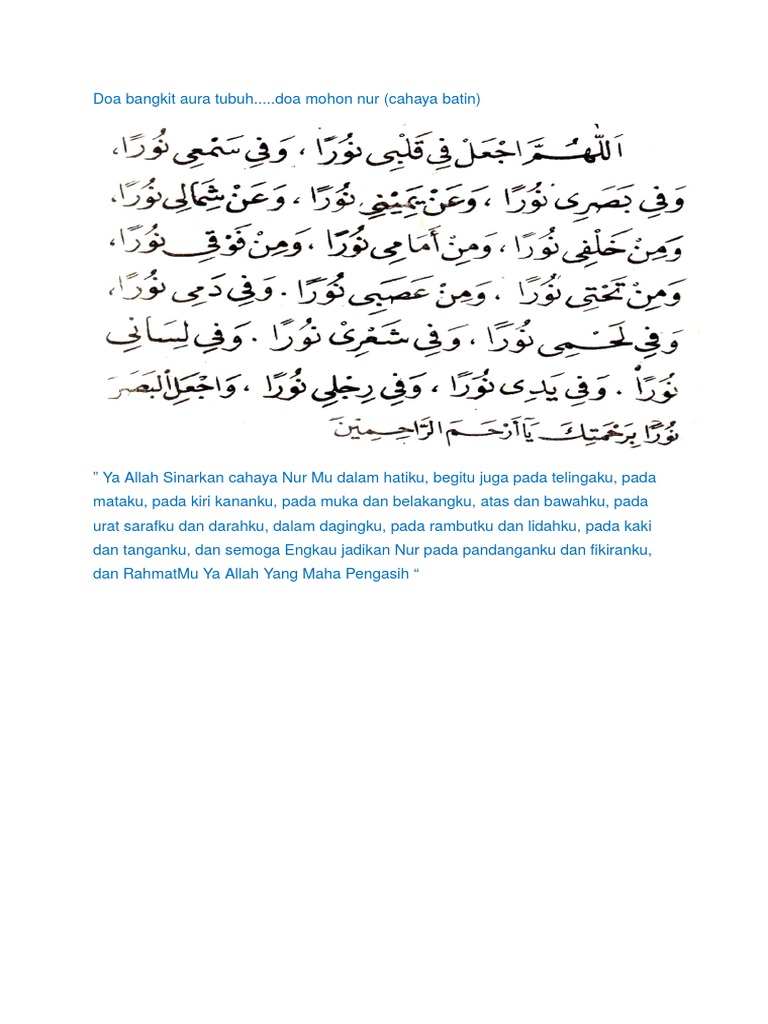 Doa bangkit aura tubuh.....doa mohon nur (cahaya batin)
اَللّٰهُمَّ اجْعَلْ فِي قَلْبِى نُوْرًا ، وَفِي سَمْعِى نُوْرًا،
وَفِي بَصَرِى نُوْرًا ، وَعَنْ يَمِيْنِي نُوْرًا ، وَعَنْ شِمَالِى نُوْرًا،
وَمِنْ خَلْفِى نُوْرًا ، وَمِنْ أَمَامِى نُوْرًا ، وَمِنْ فَوْقِي نُوْرًا،
وَمِنْ تَحْتِى نُوْرًا ، وَمِنْ عَصَبِى نُوْرًا . وَفِي دَمِى نُوْرًا،
وَفِي لَحْمِى نُوْرًا ، وَفِي شَعْرِىْ نُوْرًا . وَفِي لِسَانِى
نُوْرًا . وَفِي يَدِى نُوْرًا ، وَفِي رِجْلِي نُوْرًا ، وَاجْعَلِ الْبَصَرَ
نُوْرًا بِرَحْمَتِكَ يَآ اَرْحَمَ الرَّاحِمِيْنَ
” Ya Allah Sinarkan cahaya Nur Mu dalam hatiku, begitu juga pada telingaku, pada
mataku, pada kiri kananku, pada muka dan belakangku, atas dan bawahku, pada
urat sarafku dan darahku, dalam dagingku, pada rambutku dan lidahku, pada kaki
dan tanganku, dan semoga Engkau jadikan Nur pada pandanganku dan fikiranku,
dan RahmatMu Ya Allah Yang Maha Pengasih “